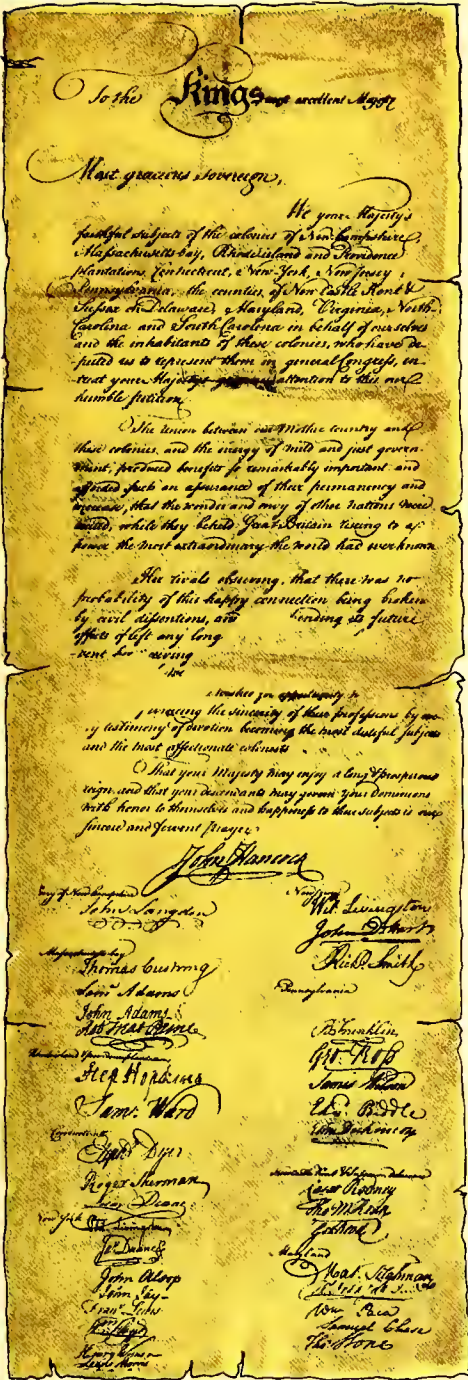 To the Kings most excellent Majesty
Most gracious sovereign,
We your Majesty's
faithful subjects of the colonies of New-hampshire,
Massachusetts-bay, Rhode island and Providence
plantations, Connecticut, New-York, New Jersey,
Pennsylvania, the counties of New Castle Kent &
Sussex on Delaware, Maryland, Virginia, North-
Carolina and South Carolina in behalf of ourselves
and the inhabitants of these colonies, who have de-
puted us to represent them in general Congress, en-
treat your Majestys attention to this our
humble petition.
The union between our Mother country and
these colonies, and the energy of mild and just govern-
ment, produced benefits so remarkably important and
afforded such an assurance of their permanency and
increase, that the wonder and envy of other nations were
excited, while they beheld Great Britain rising to a
power the most extraordinary the world had ever known
Her rivals observing, that there was no
probability of this happy connection being broken
by civil dissentions, and ending its future
effects if left any long
-ment
wishes for opportunity to
the sincerity of their professions by
y testimony of devotion becoming the most dutiful subjects
and the most affectionate colonists
That your Majesty may enjoy a long & prosperous
reign, and that your descendants may govern your Dominions
with honor to themselves and happiness to their subjects is our
sincere and fervent prayer.
John Hancock
John Langdon
Massachusetts bay
Thomas Cushing
Sam Adams
John Adams
Rob Treat Paine
Step Hopkins
Sam: Ward
Connecticut
Elipht Dyer
Roger Sherman
Silas Deane
New York
Livingston
Jas Duane
John Alsop
John Jay
Fran Lewis
Lewis Morris
New Jersey
Wil Livingston
John DeHart
Richd. Smith
Pennsylvania
B Franklin
Geo: Ross
James Wilson
Edw Biddle
Caesar Rodney
Tho McKean
Maryland
Mat. Tilghman
Wm Paca
Samuel Chase
Tho Stone